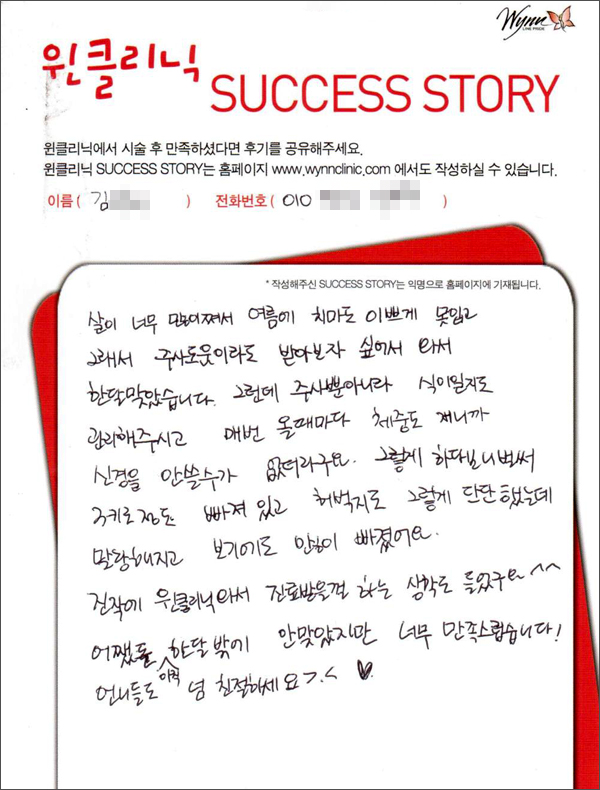 Wynn
LINE PRIDE
윈클리닉
SUCCESS STORY
윈클리닉에서 시술 후 만족하셨다면 후기를 공유해주세요.
윈클리닉 SUCCESS STORY는 홈페이지 www.wynnclinic.com 에서도 작성하실 수 있습니다.
이름 ( 김 ) 전화번호 ( 010 )
* 작성해주신 SUCCESS STORY는 익명으로 홈페이지에 기재됩니다.
살이 너무 많이쪄서 여름에 치마도 이쁘게 못입고
그래서 주사도움이라도 받아보자 싶어서 와서
한달맞았습니다. 그런데 주사뿐아니라 식이일지도
관리해주시고 매번 올때마다 체중도 재니까
신경을 안쓸수가 없더라구요. 그렇게 하다보니벌써
3키로정도 빠져있고 허벅지도 그렇게 단단했는데
말랑해지고 보기에도 많이 빠졌어요.
진작에 윈클리닉와서 진료받을껄 하는 생각도 들었구요^^
어쨌든 한달밖에 안맞았지만 너무 만족스럽습니다!
언니들도 넘 친절하세요>.< ♥